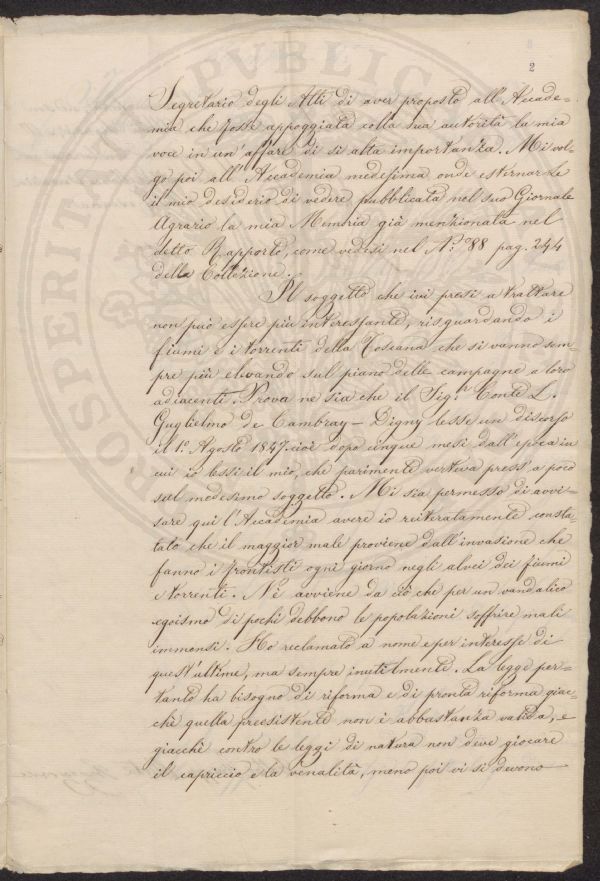 2
Segretario degli Atti di aver proposto all'Accade=
mia che fosse appoggiata colla sua autorità la mia
voce in un'affare di si alta importanza. Mi vol-
go poi all'Accademia medesima onde esternarLe
il mio desiderio di vedere pubblicata nel suo Giornale
Agrario la mia Memoria già menzionata nel
detto Rapporto, come vedesi nel N.° 88 pag. 244
della Collezione.
Il soggetto che ivi presi a trattare
non può essere più interessante, risguardando i
fiumi e i torrenti della Toscana che si vanno sem-
pre più elevando sul piano delle campagne a loro
adiacenti. Prova ne sia che il Sig.r Conte L.
Guglielmo de Cambray-Digny lesse un discorso
il 1.° Agosto 1847. cioè dopo cinque mesi dall'epoca in
cui io lessi il mio, che parimente verteva press'a poco
sul medesimo soggetto. Mi sia permesso di avvi-
sare qui l'Accademia avere io reiteratamente consta-
tato che il maggior male proviene dall'invasione che
fanno i frontisti ogni giorno negli alvei dei fiumi
e torrenti. Ne avviene da ciò che per un vandalico
egoismo di pochi debbono le popolazioni soffrire mali
immensi. Ho reclamato a nome e per interesse di
quest'ultime, ma sempre inutilmente. La legge per-
tanto ha bisogno di riforma e di pronta riforma giac-
chè quella preesistente non è abbastanza valida, e
giacchè contro le leggi di natura non deve giocare
il capriccio e la venalità, meno poi vi si devono
PVBLIC
PROSPERITATI